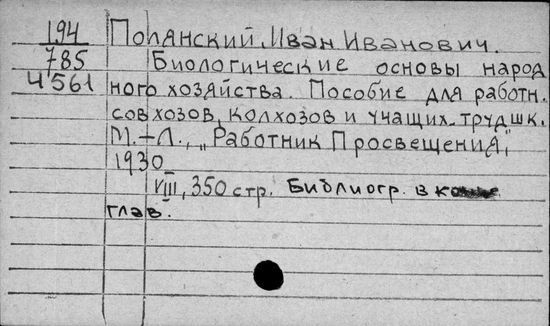 194 Полянский, Иван Иванович.
785 Биологические основы народ
4'561 ного хозяйства. Пособие для работн.
совхозов, колхозов и учащих. труд шк.
М.-Л., „Работник Просвещения",
1930
VIII, 350 стр. Библиогр. в конце
глав.